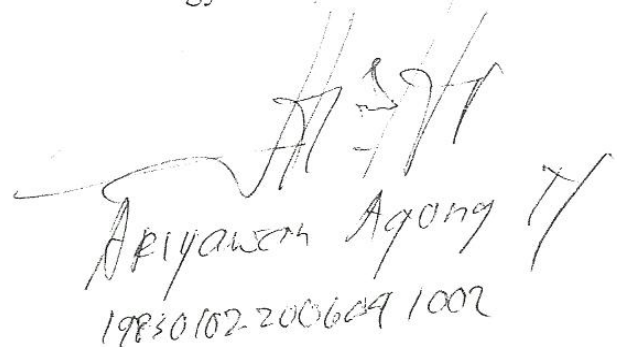 Ariyawan Agong
19830102 200604 1002